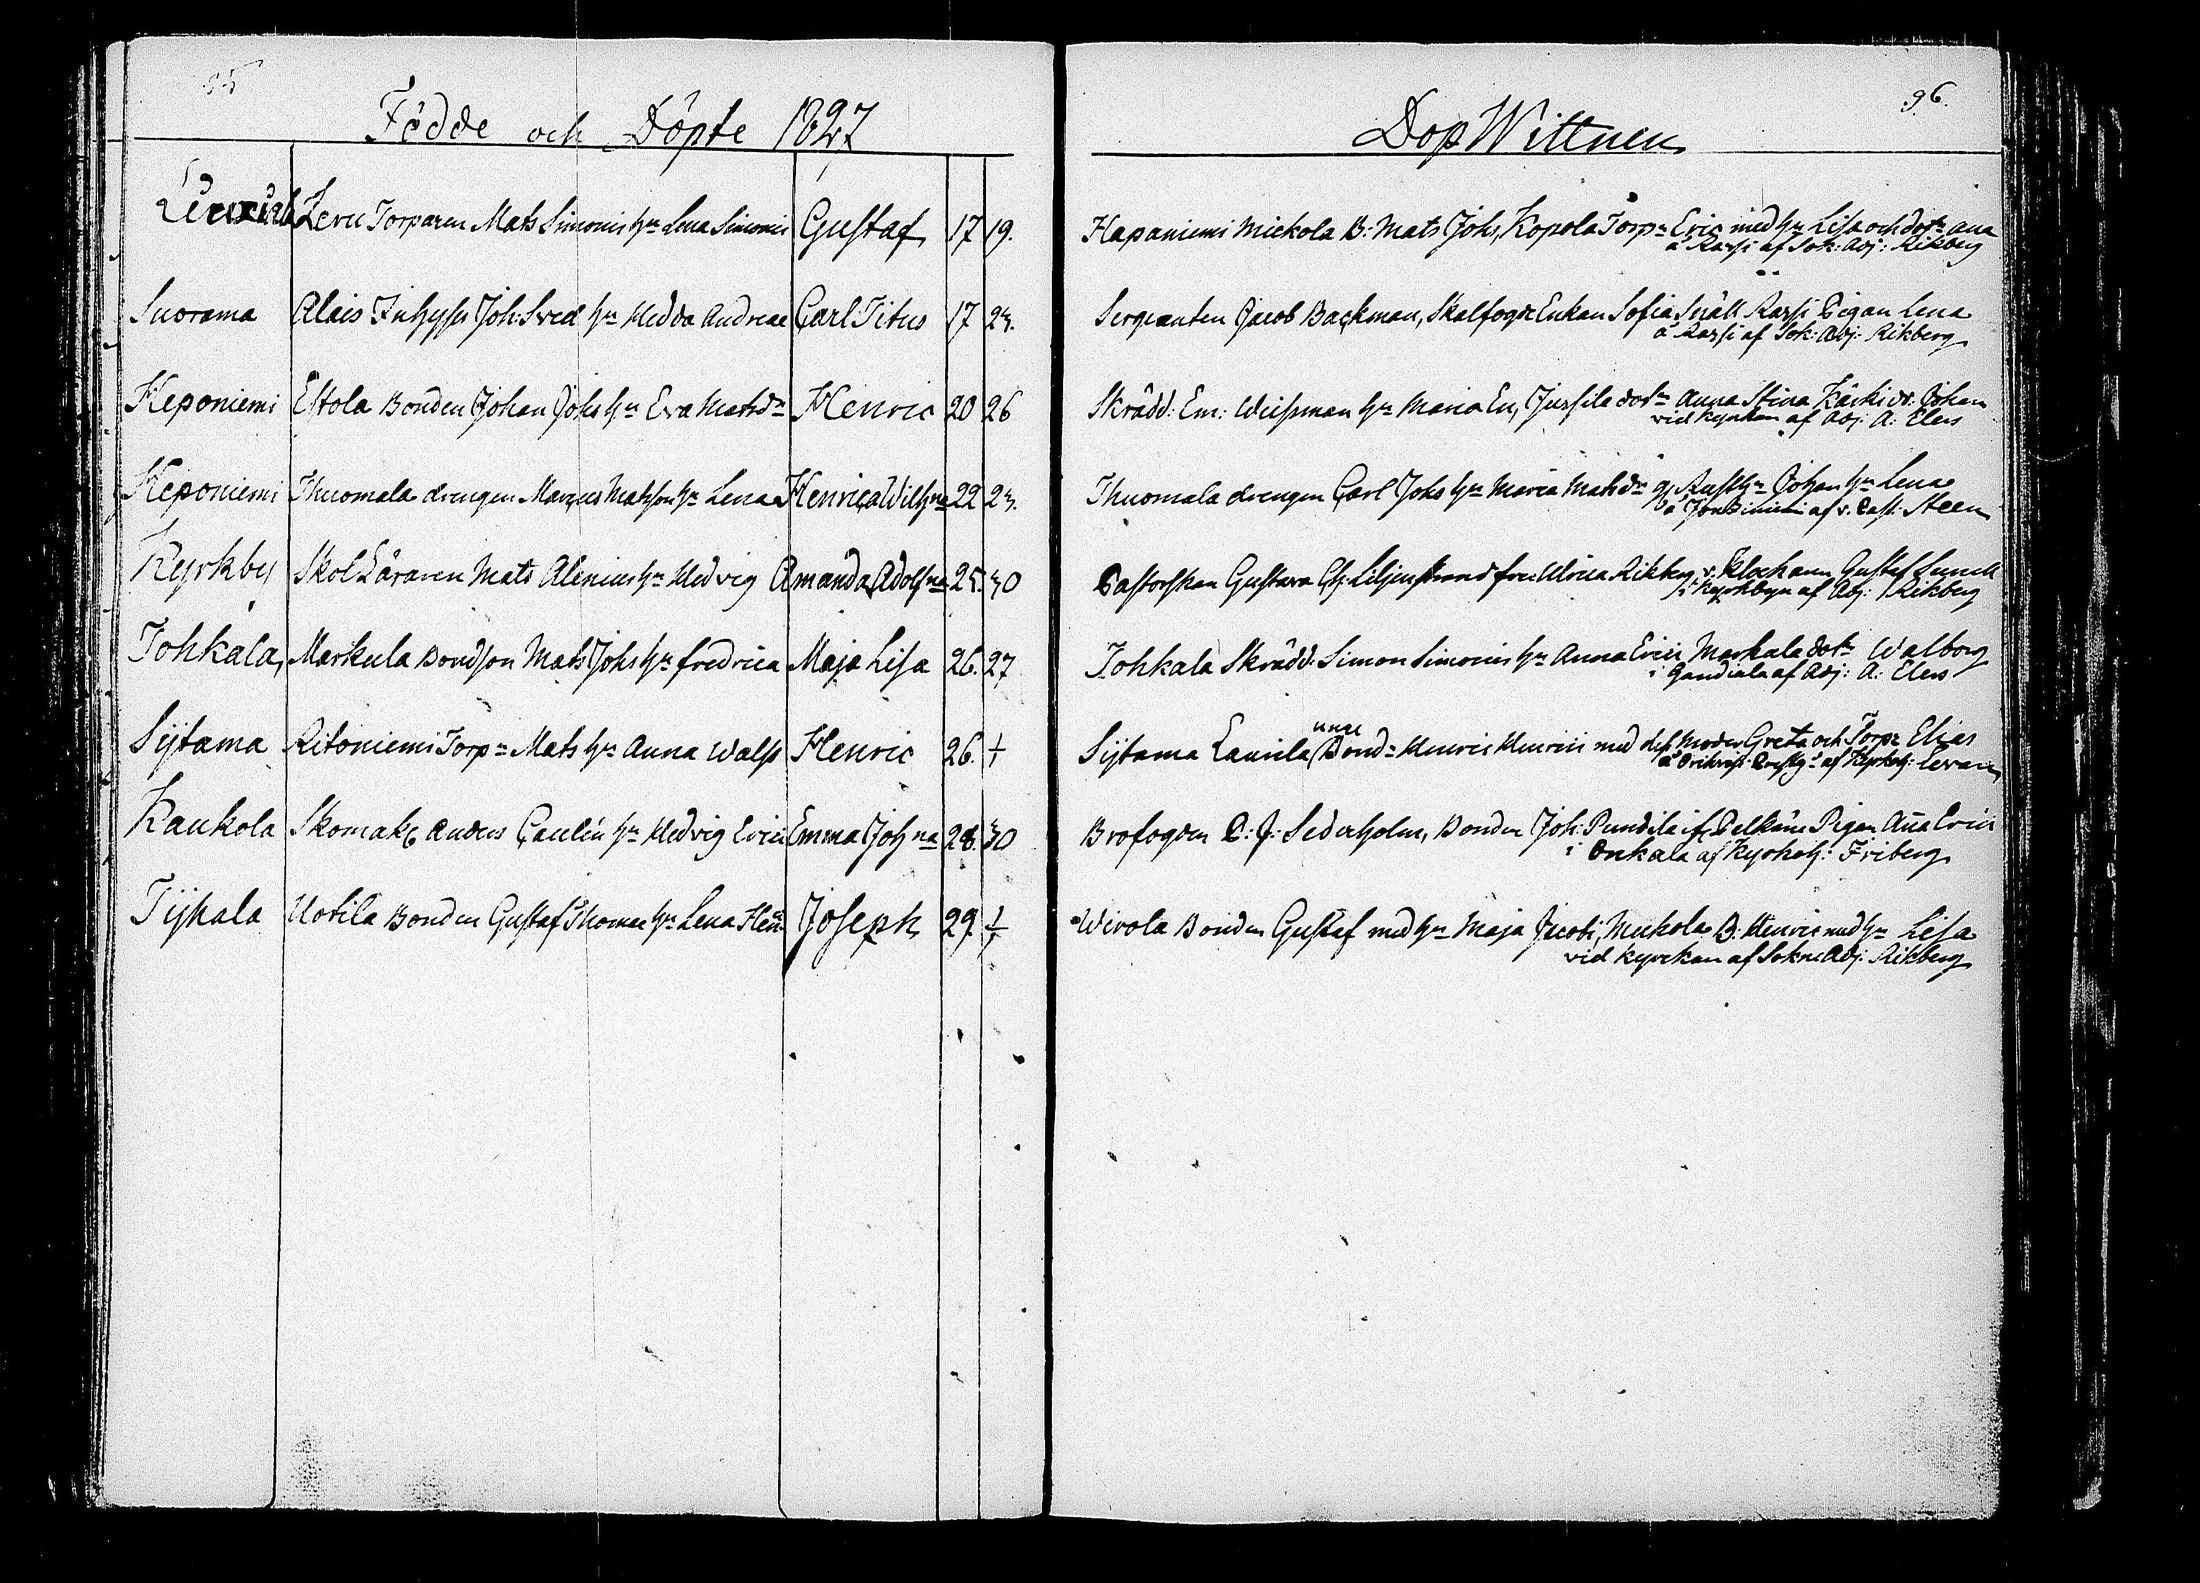 95
Födde och Döpte 1827
Leru Torparen Mats Simonis hu Lena Simonis Gustaf 17 19.
Suorama Alais Inhyss Joh: Sved hu Hedda Andreae Carl Titus 17 23.
Heponiemi Eltola Bonden Johan Johs hu Eva Matsdr Henric 20 26
Heponiemi Thuomala drengen Marcus Matsson hu Lena Henrica Wilhna 22 23.
Kyrkby Skol Läraren Mats Alenius hu Hedvig Amanda Adolfna 25. 30
Tohkala, Markula Bondson Mats Johs hu fredrica Maja Lisa 26. 27
Sÿtama Ritoniemi Torpr Mats hu Anna Walfr Henric 26. +
Kaukola Skomak Anders Caulin hu Hedvig Erici Emma Joh na 28. 30
Tijhala Uotila Bonden Gustaf Thomae hu Lena Hen: Joseph 29. 1/1
96.
Dop Wittnen
Hapaniemi Mickola B: Mats Johs, Kopola Torpr Eric med hu Lisa och dotr Ana
å Rassi af Sok: Adj: Rikberg
Sergeanten Jacob Backman, Skalfogde Enkan Sofia Snäll Rassi Pigan Lena
å Rassi af Sok: Adj: Rikberg
Skrädd: Em: Weissman hu Maria Er, Jussila dotr Anna Stina Kärki dr. Johan
vid kyrkan af Adj. A. Elers
Thuomala drengen Carl Johs hu Maria Matsdr Rusth Johan hu Lena
af v. Past. Steen
Pastorskan Gustava Ch: Liljenstrand frun Ulrica Rikberg, v. Klockaren Gustaf Lunell
i Kyrkbyn af Adj: Rikberg
Tohkala Skrädd: Simon Simonis hu Anna Erici Markala dotr Walborg
i Gandiala af Adj: A. Elers
Sÿtama Laurila unge Bond: Henric Henrici med dess moder Greta och Torpr Elias
af Kyrkoh: Cervan
Brofogden C. J. Sederholm, Bonden Joh: Pundila if. Pelkäne Pigan Ana Erici
i Onkala af Kyrkoh: Friberg
Wivola Bonden Gustaf med hu Maja Jacobi, Muckola B: Henric med hu Lisa
vid kyrckan af Sokne Adj: Rikberg